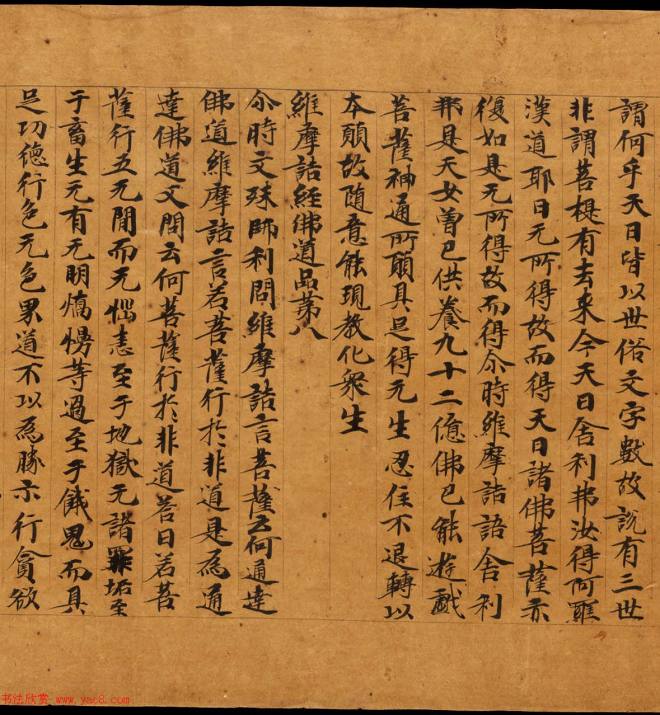 謂何乎天曰皆以世俗文字數故說有三世
非謂菩提有去來今天曰舍利弗汝得阿羅
漢道耶曰无所得故而得天曰諸佛菩薩亦
復如是无所得故而得尒時維摩詰語舍利
弗是天女曽已供養九十二億佛已能遊戲
菩薩神通所願具足得无生忍住不退轉以
本願故随意能現教化衆生
維摩詰經佛道品第八
尒時文殊師利問維摩詰言菩薩云何通達
佛道維摩詰言若菩薩行於非道是為通
達佛道又問云何菩薩行於非道荅曰若菩
薩行五无間而无惱恚至于地獄无諸罪垢至
于畜生无有无明憍慢等過至于餓鬼而具
足功德行色无色界道不以為勝示行貪欲
书法欣赏-www.yac8.com